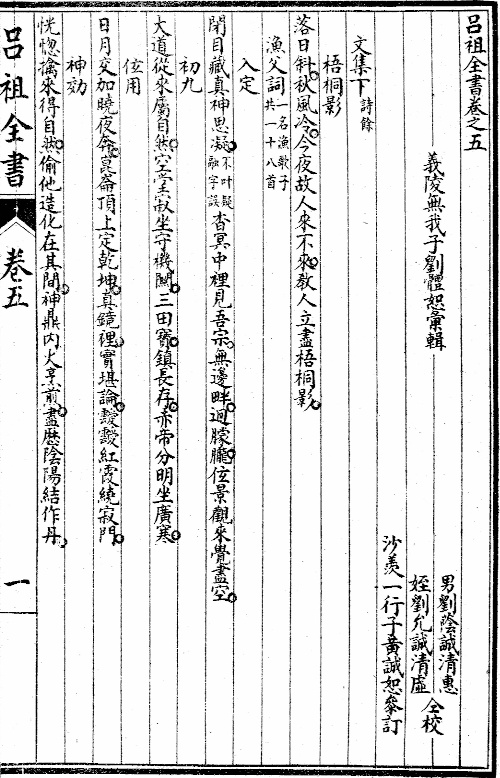 呂祖全書卷之五
義陵無我子劉體恕彙輯
男劉蔭誠清惠
姪劉允誠清虛
仝校
沙羨一行子黃誠恕參訂
文集下 詩餘
梧桐影
落日斜。秋風冷。今夜故人來不來。教人立盡梧桐影。
漁父詞 一名漁歌子 共一十八首
入定
閉目藏真神思凝。不叶疑融字誤 杳冥中裡見吾宗。無邊畔。迥朦朧。位景觀來覺盡空。
初九
大道從來屬自然。空堂寂坐守機關。三田寶。鎮長存。赤帝分明坐廣寒。
位用
日月交加曉夜奔。崑崙頂上定乾坤。真鏡裡。實堪論。靉靉紅霞繞寂門。
神効
恍惚擒來得自然。偷他造化在其間。神鼎內。火烹煎。盡歷陰陽結作丹。
呂祖全書
卷五
一